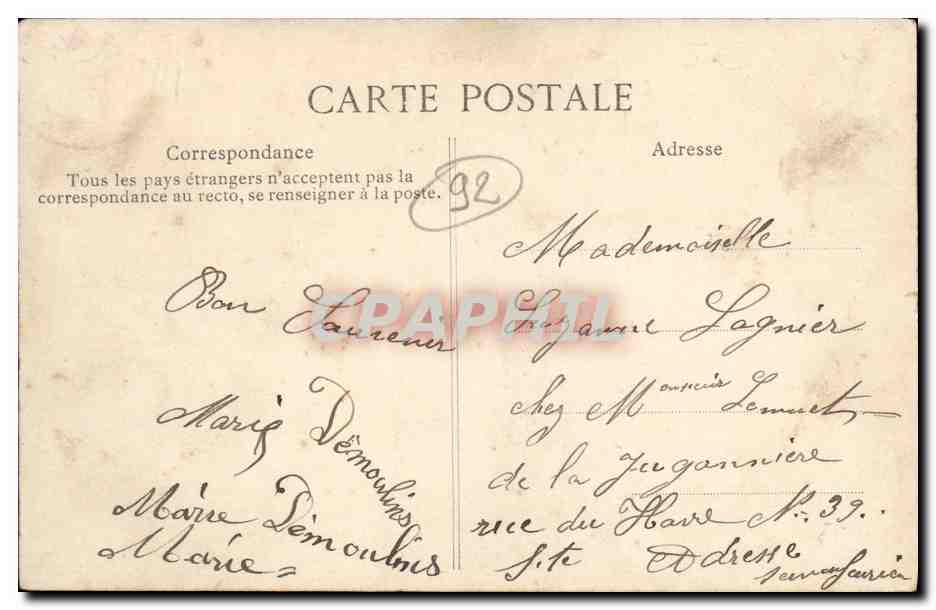 CARTE POSTALE
Correspondance
Tous les pays étrangers n'acceptent pas la
correspondance au recto, se renseigner à la poste.
92
Adresse
Bon
Marie Démoulins
Màrie Démoulins
Màrie
CPAPHIL
Mademoiselle
Suzanne Lagnier
chez Monsieur Lemuet
de la Jugannière
rue du Havre No. 39.
Ste Adresse